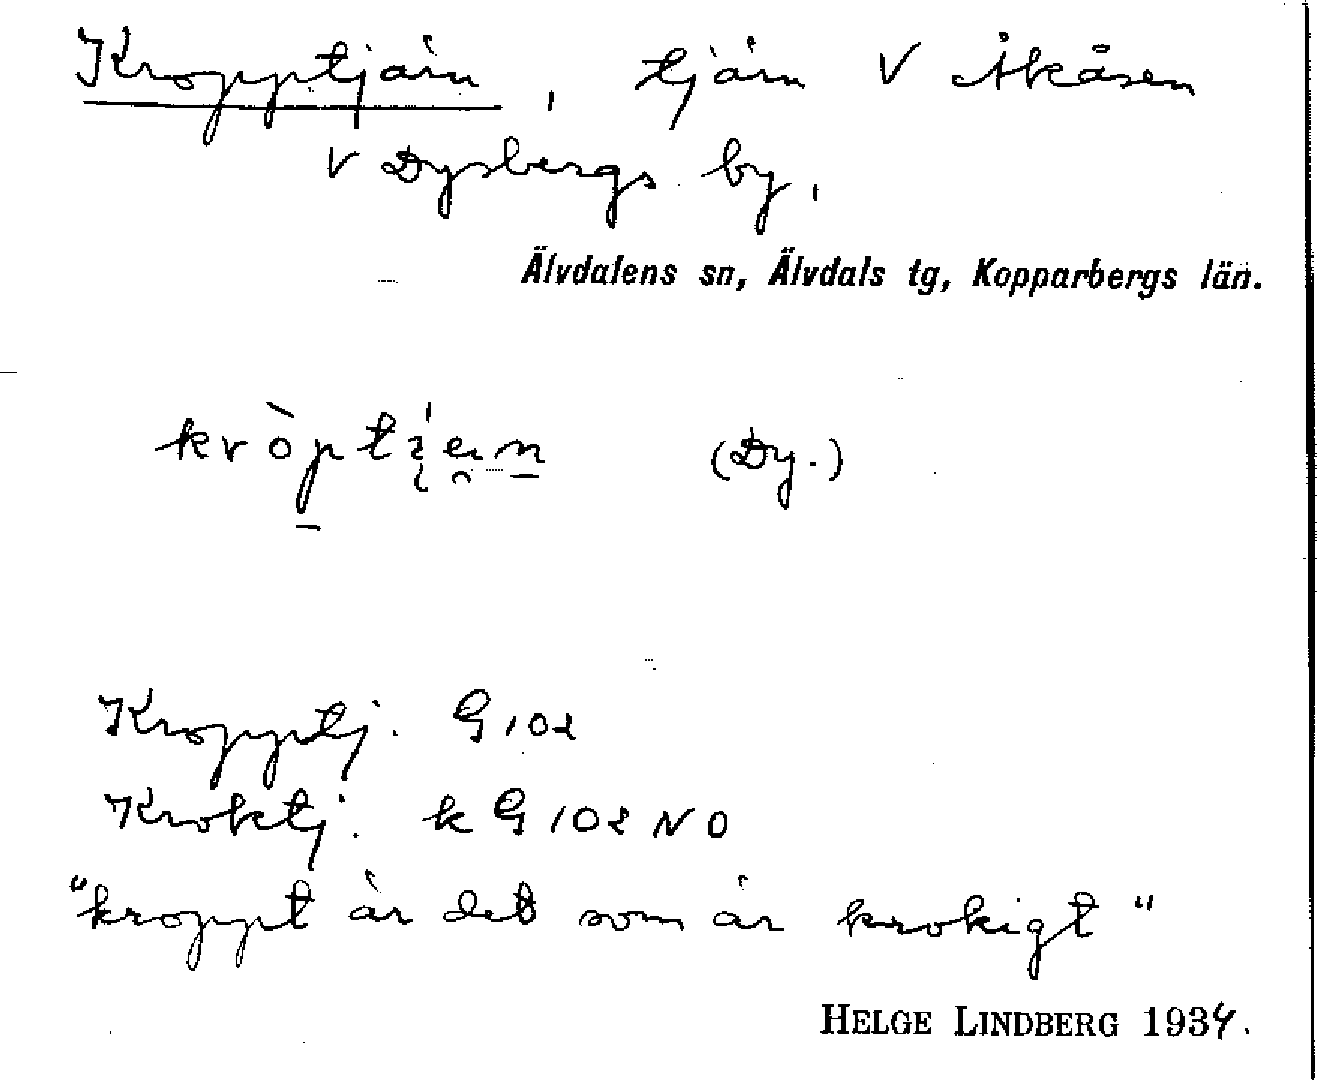 Kropptjärn, tjärn V Åkåsen
V Dysbergs by,
Älvdalens sn, Älvdals tg, Kopparbergs län.
(Dy.)
Kropptj. G 102
Kroktj. k G 102 NO
"kroppt är det som är krokigt"
HELGE LINDBERG 1934.